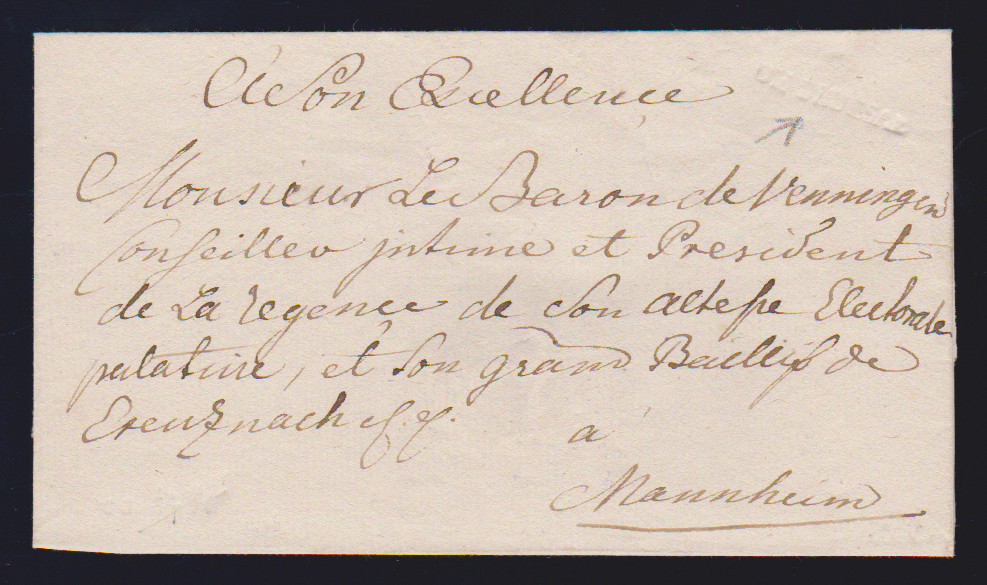 A Son Excellence
Monsieur Le Baron de Venningen
Conseiller jntime et President
de La regence de Son altesse Electorale
palatine, et Son grand Baillif de
Creuznach
a
Mannheim